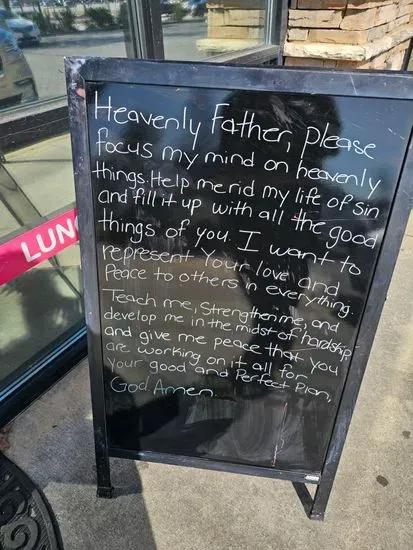 Heavenly Father, please
focus my mind on heavenly
things. Help me rid my life of sin
and fill it up with all the good
things of you. I want to
represent Your love and
Peace to others in everything.
Teach me, Strengthen me, and
develop me in the midst of hardship
and give me peace that you
are working on it all for
your good and Perfect Plan,
God. Amen.
LUN